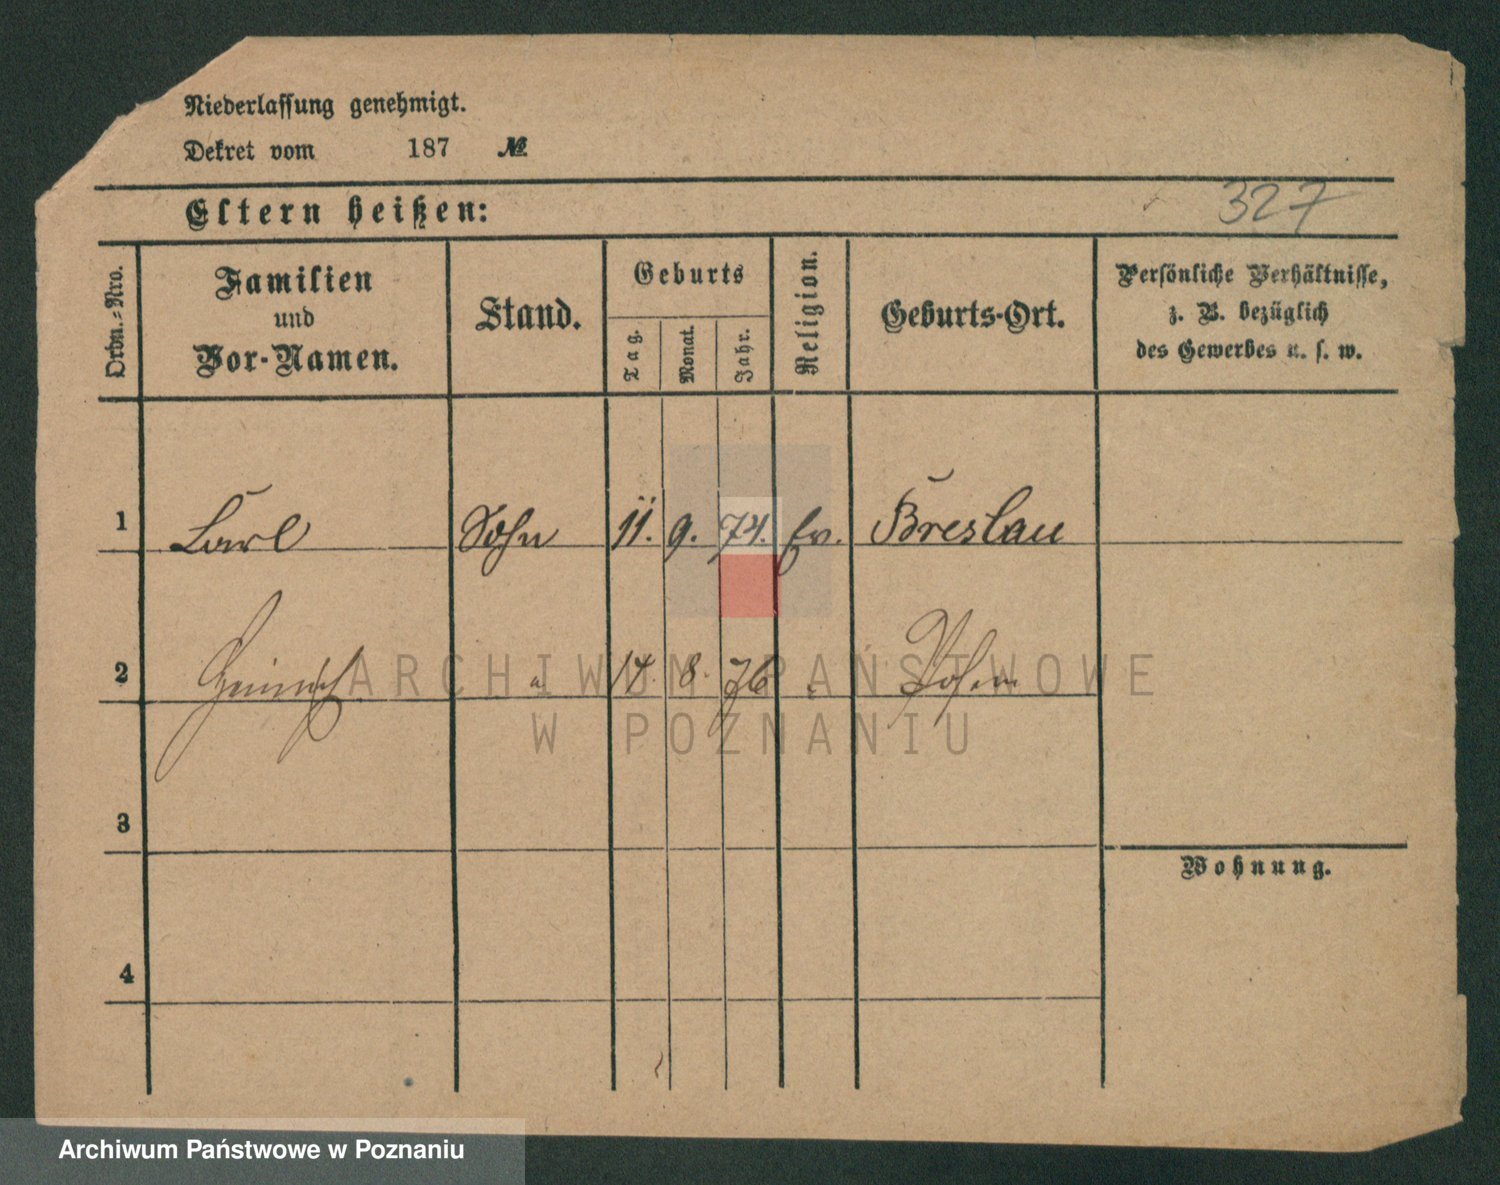 Niederlassung genehmigt.
Dekret vom 187 №
Eltern heißen:
327
Ordn.-Nro.
Familien
und
Vor-Namen.
Stand.
Geburts
Tag.
Monat.
Jahr.
Religion.
Geburts-Ort.
Persönliche Verhältnisse,
z. B. bezüglich
des Gewerbes u. s. w.
1 Carl Sohn 11. 9. 74. Ev. Breslau
2 Heinrich " 14. 8. 76 " Posen
3
Wohnung.
4
ARCHIWUM PAŃSTWOWE
W POZNANIU
Archiwum Państwowe w Poznaniu